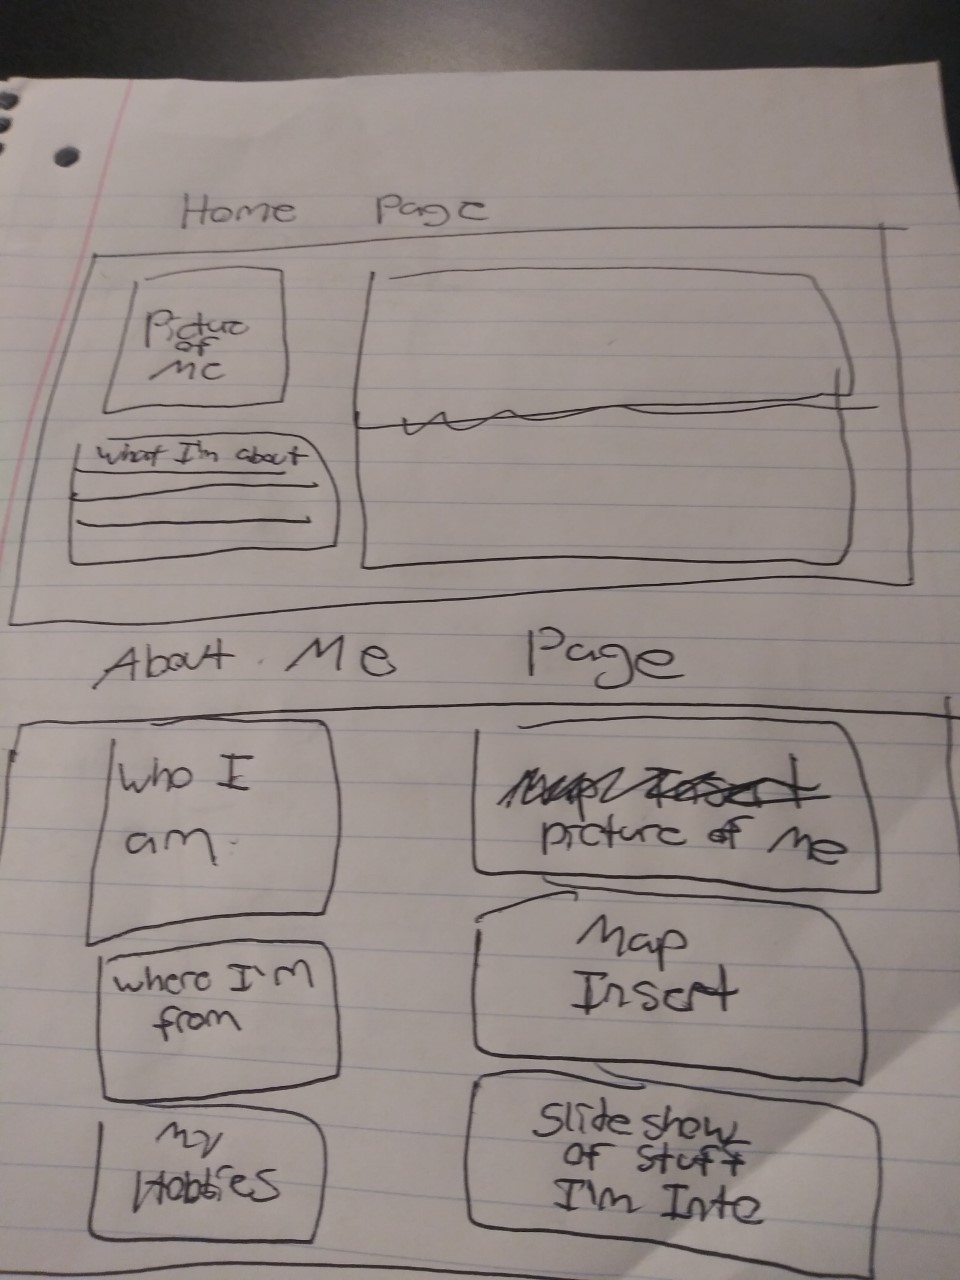 Home Page
Picture
of
Me
What I'm about
About Me Page
who I
am
picture of Me
where I'm
from
Map
Insert
My
Hobbies
Slide show
of stuff
I'm Into